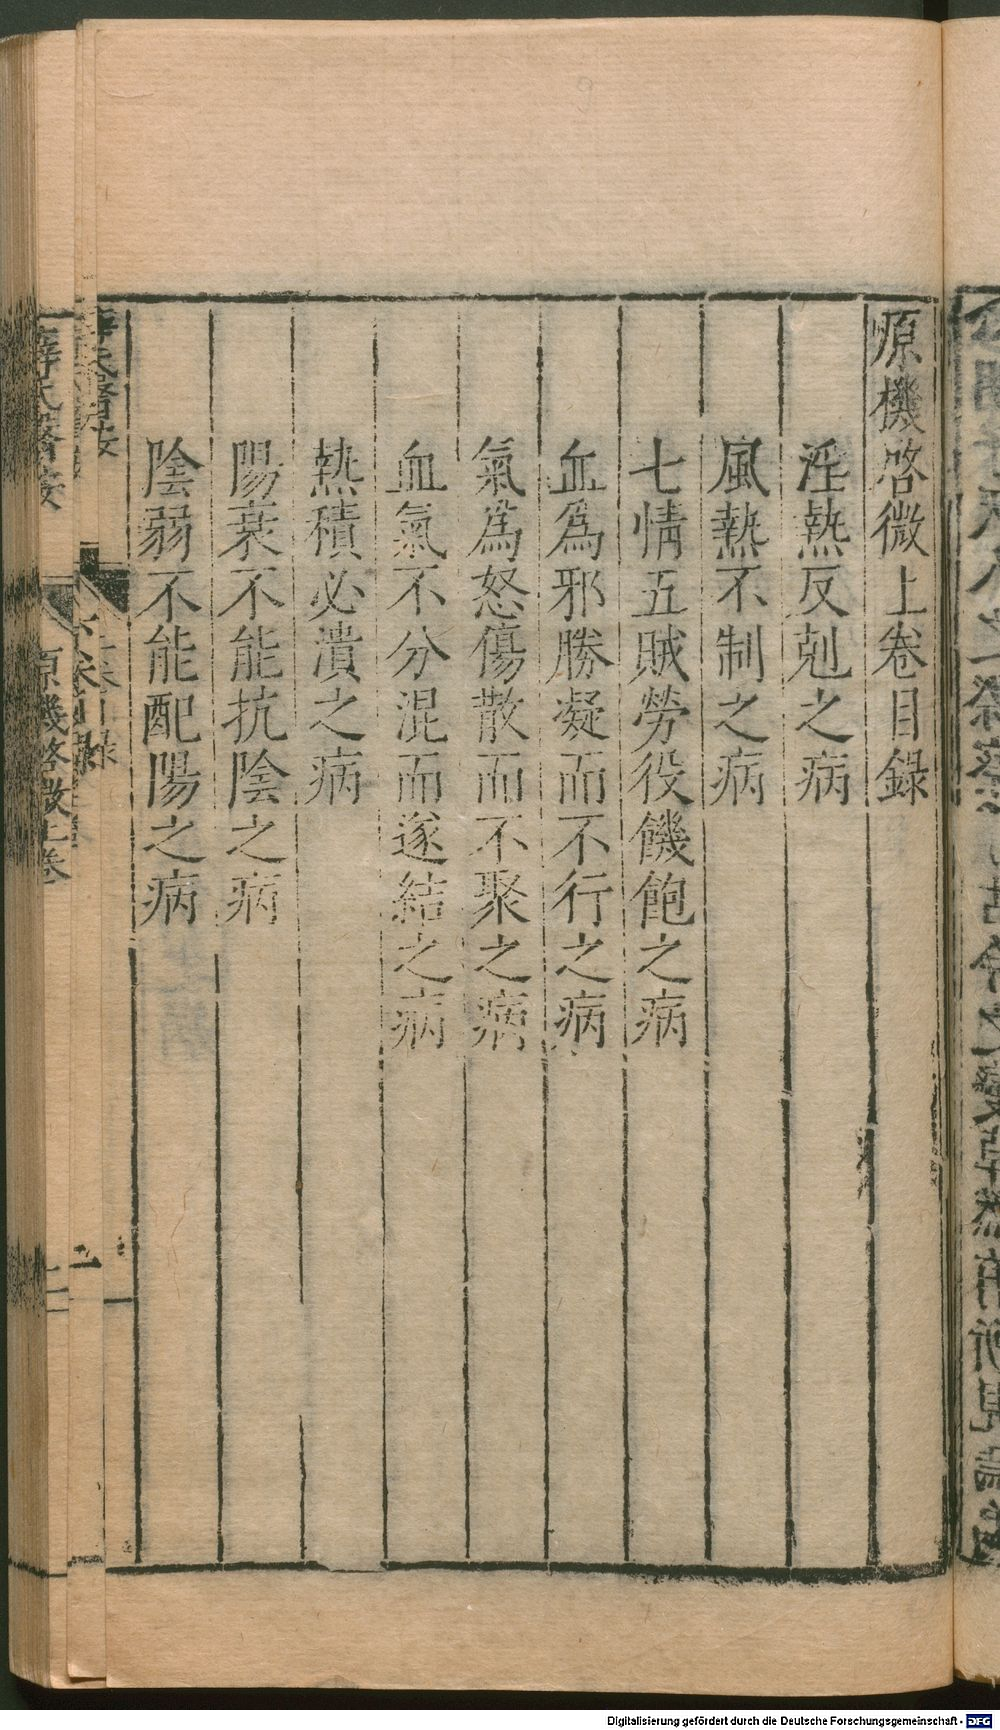 原機啓微上卷目錄
淫熱反剋之病
風熱不制之病
七情五賊勞役饑飽之病
血爲邪勝凝而不行之病
氣爲怒傷散而不聚之病
血氣不分混而遂結之病
熱積必潰之病
陽衰不能抗陰之病
陰弱不能配陽之病
薛氏醫按
原機啓微上卷
Digitalisierung gefördert durch die Deutsche Forschungsgemeinschaft - DFG